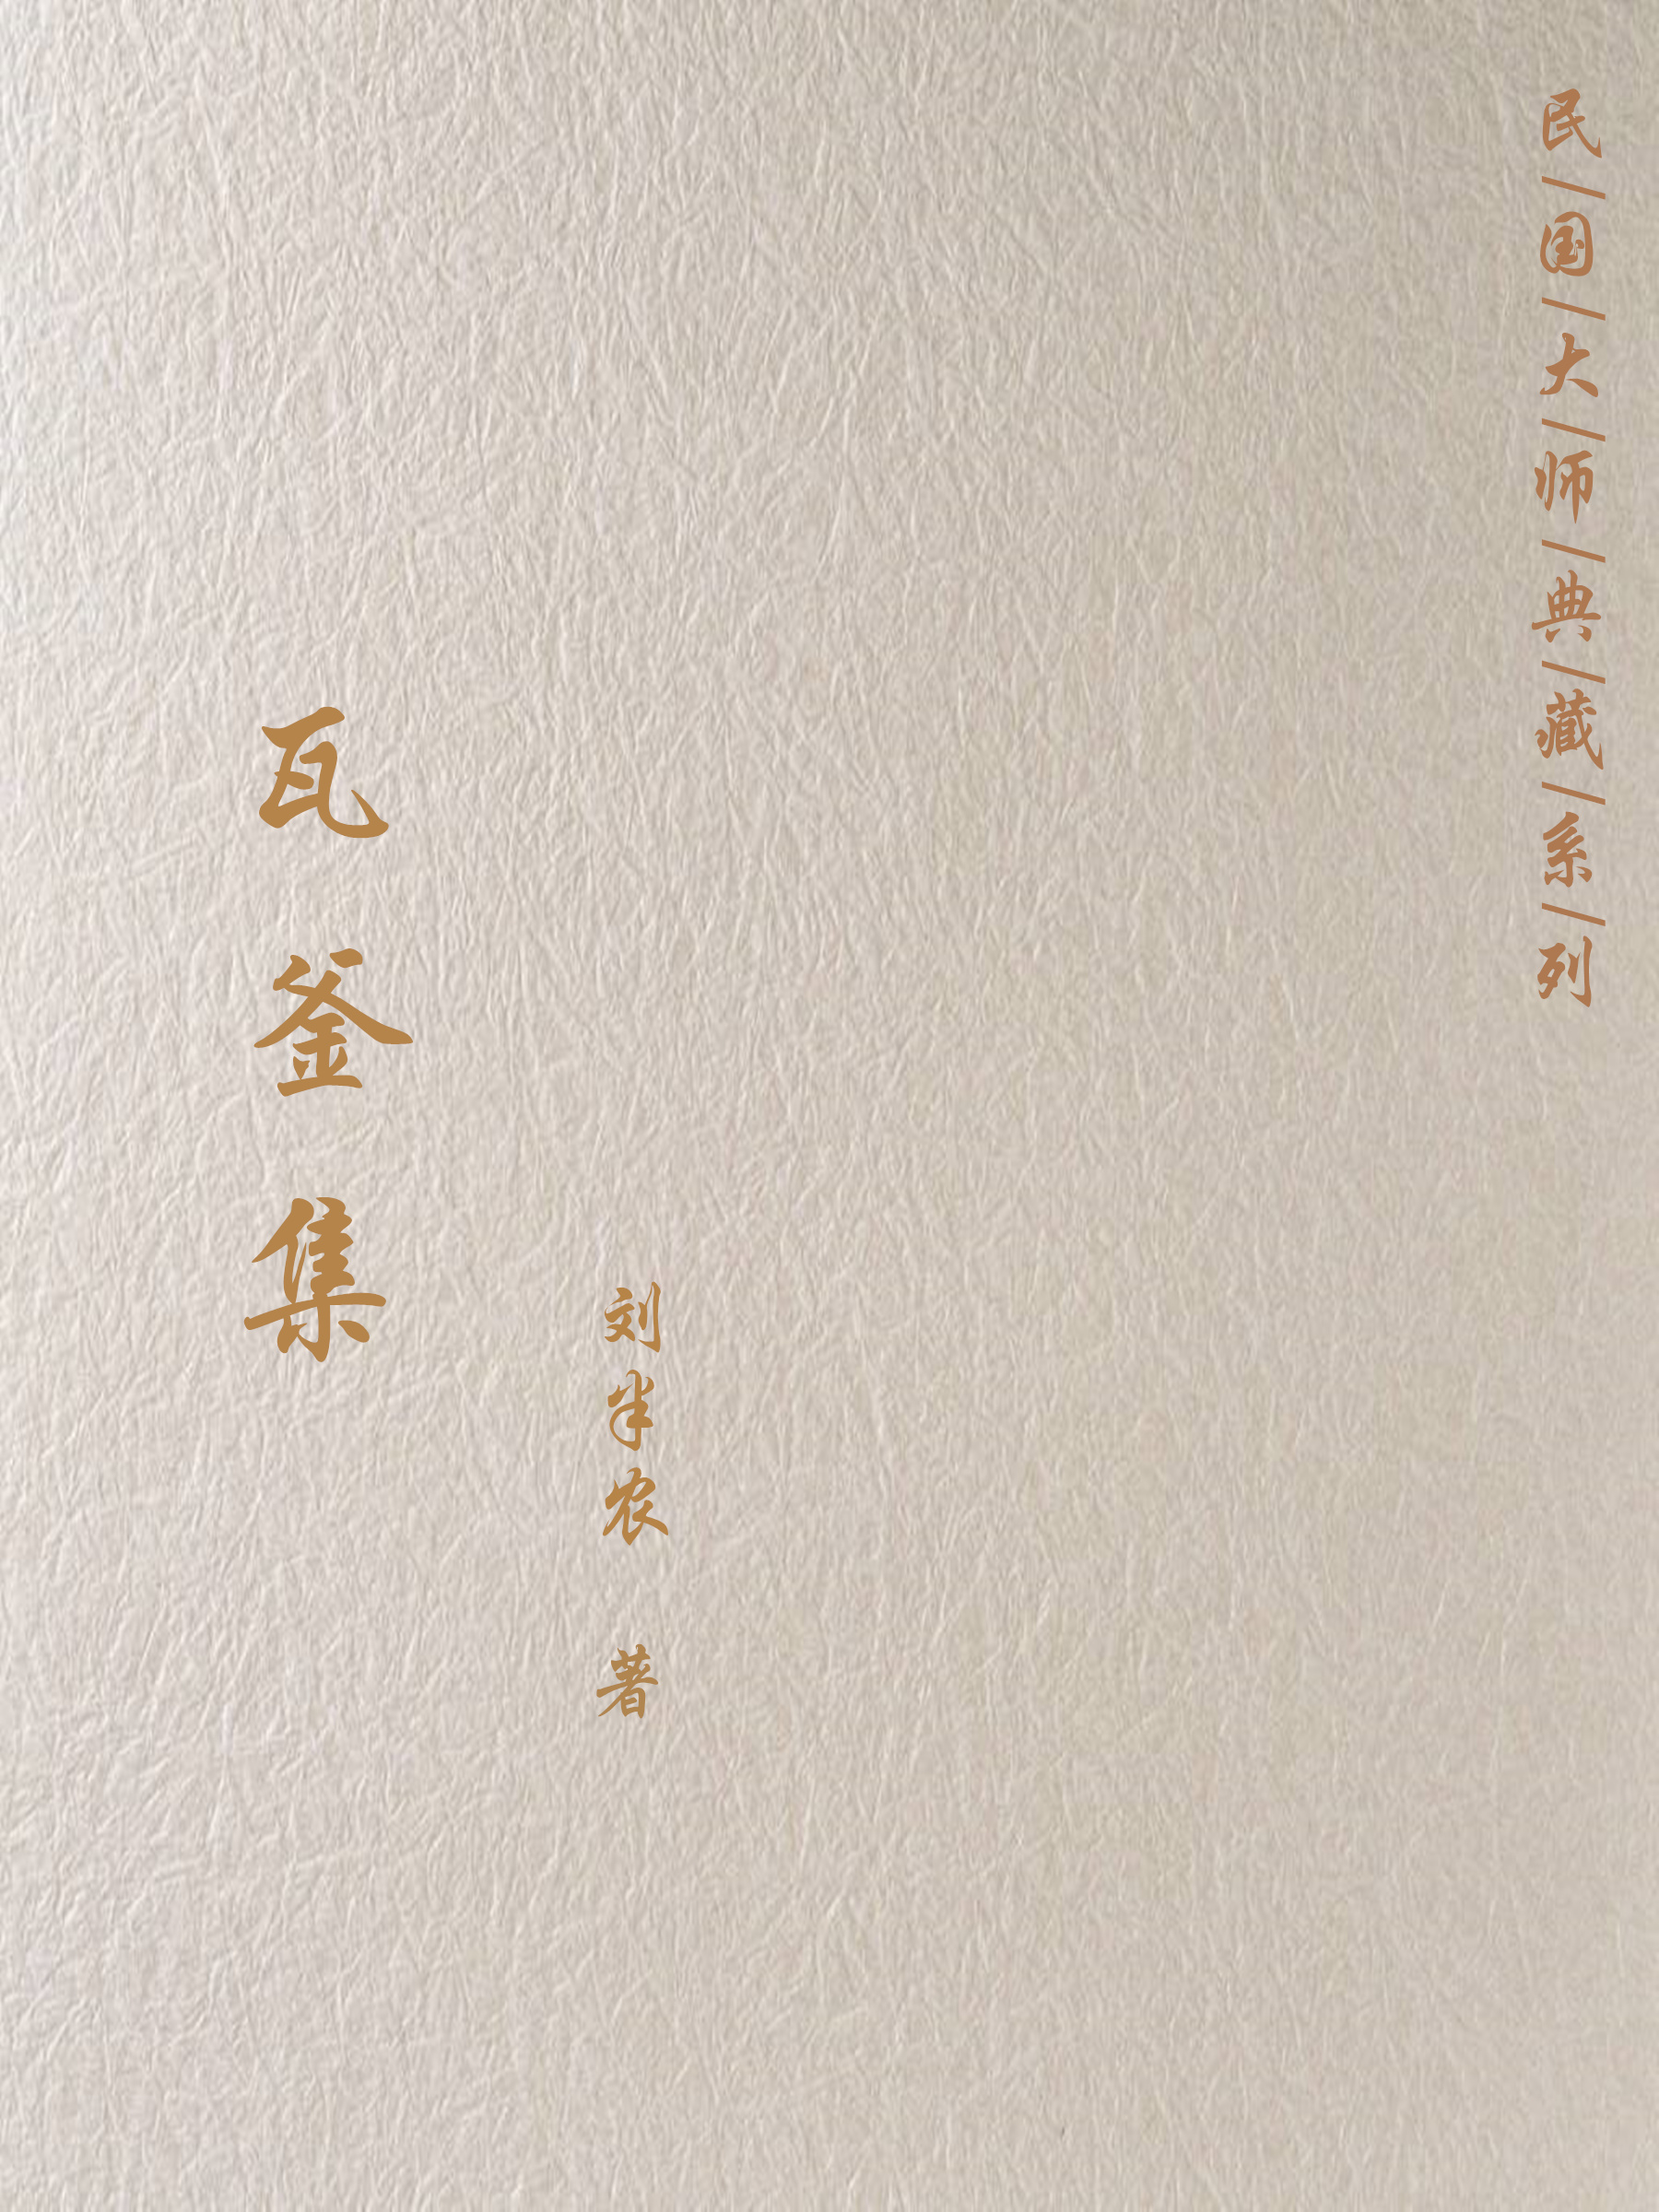 民/国/大/师/典/藏/系/列
瓦釜集
刘半农 著